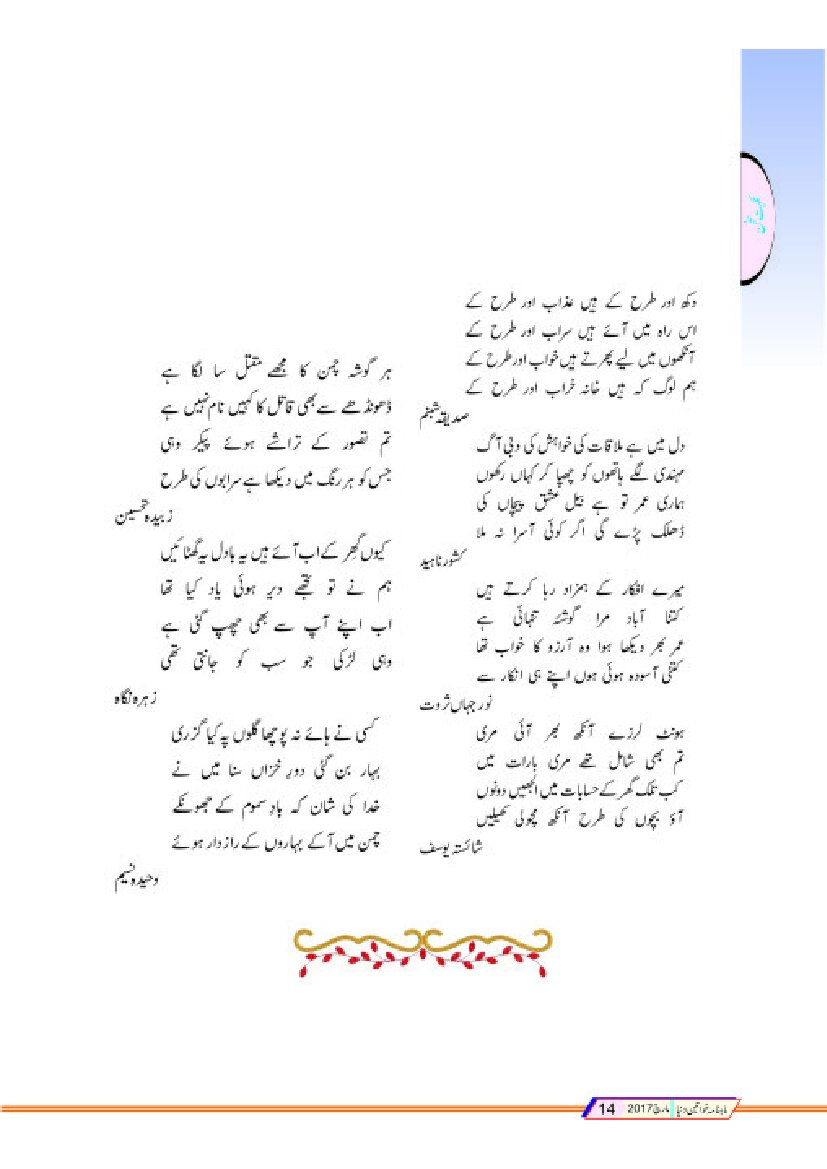 دکھ اور طرح کے ہیں عذاب اور طرح کے
اس راہ میں آئے ہیں سراب اور طرح کے
آنکھوں میں لیے پھرتے ہیں خواب اور طرح کے
ہم لوگ کہ ہیں خانہ خراب اور طرح کے
صدیقہ شبنم
دل میں ہے ملاقات کی خواہش کی دبی آگ
مہندی لگے ہاتھوں کو چھپا کر کہاں رکھوں
ہماری عمر تو ہے بیل عشق پیچاں کی
ڈھلک پڑے گی اگر کوئی آسرا نہ ملا
کشور ناہید
میرے افکار کے ہمزاد رہا کرتے ہیں
کتنا آباد مرا گوشۂ تنہائی ہے
عمر بھر دیکھا ہوا وہ آرزو کا خواب تھا
کتنی آسودہ ہوئی ہوں اپنے ہی انکار سے
نور جہاں ثروت
ہونٹ لرزے آنکھ بھر آئی مری
تم بھی شامل تھے مری بارات میں
کب تلک گھر کے حسابات میں الجھیں دونوں
آؤ بچوں کی طرح آنکھ مچولی کھیلیں
شائستہ یوسف
ہر گوشہ چمن کا مجھے مقتل سا لگا ہے
ڈھونڈھے سے بھی قاتل کا کہیں نام نہیں ہے
تم تصور کے تراشے ہوئے پیکر وہی
جس کو ہر رنگ میں دیکھا ہے سرابوں کی طرح
زبیدہ تحسین
کیوں گھر کے اب آئے ہیں یہ بادل یہ گھٹائیں
ہم نے تو تجھے دیر ہوئی یاد کیا تھا
اب اپنے آپ سے بھی چھپ گئی ہے
وہی لڑکی جو سب کو جانتی تھی
زہرہ نگاہ
کسی نے ہائے نہ پوچھا گلوں پہ کیا گزری
بہار بن گئی دور خزاں سنا میں نے
خدا کی شان کہ بادِ سموم کے جھونکے
چمن میں آکے بہاروں کے رازدار ہوئے
وحیدہ نسیم
ماہنامہ خواتین دنیا مارچ 2017 14